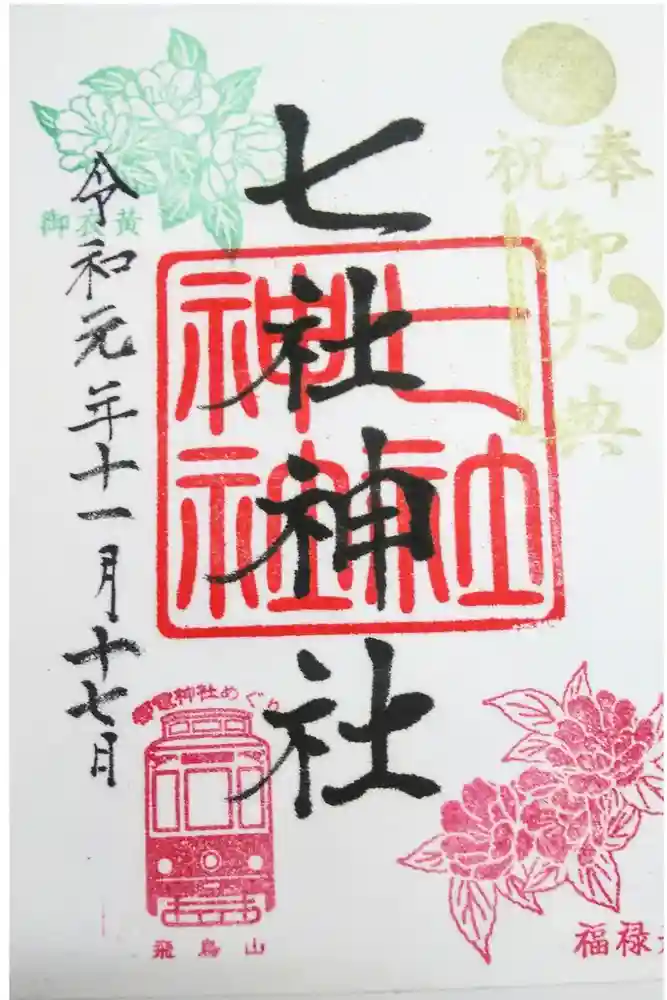 奉祝
御大典
七社神社
七社神社
御衣黄
令和元年十一月十七日
都電神社めぐり
飛鳥山
福禄